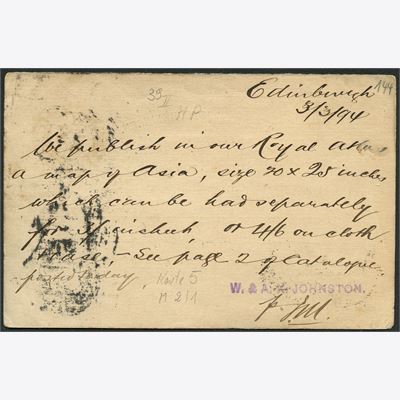 Edinburgh 144
3/3/94
39 II
HP
We publish in our Royal Atlas
a map of Asia, size 20 x 25 inches
which can be had separately
for in sheet or 4/6 on cloth
case, - See page 2 of Catalogue
posted today
W. & A. K. JOHNSTON.
M 2/1